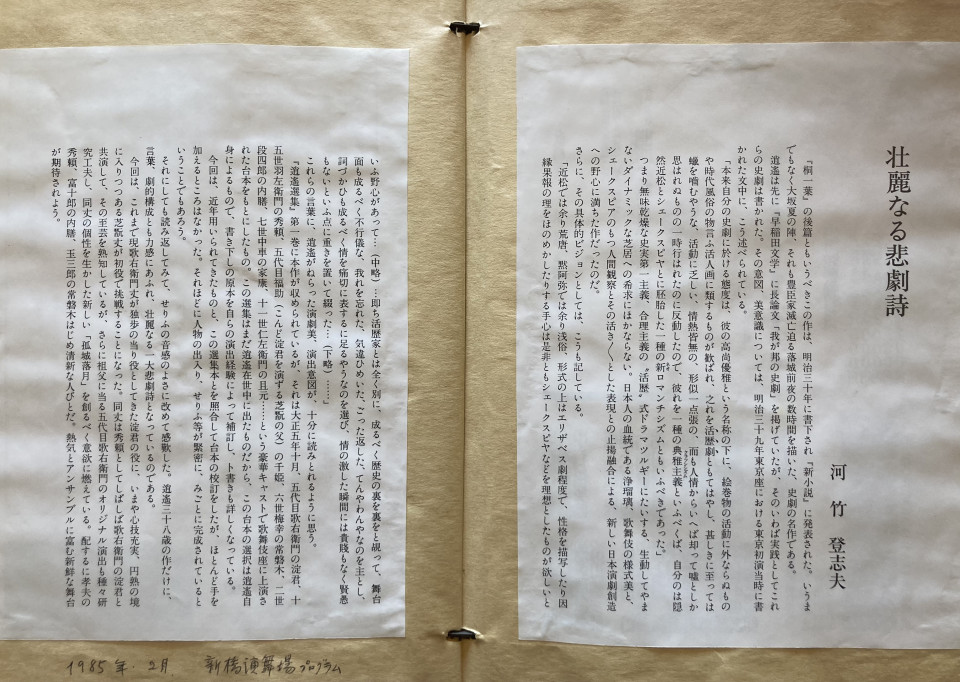 壮麗なる悲劇詩
河竹登志夫
「桐一葉』の後篇ともいうべきこの作は、明治三十年に書下され『新小説』に発表された。いうま
でもなく大坂夏の陣、それも豊臣家滅亡迫る落城前夜の数時間を描いた、史劇の名作である。
逍遙は先に『早稲田文学』に長論文「我が邦の史劇」を掲げていたが、そのいわば実践としてこれ
らの史劇は書かれた。その意図、美意識については、明治三十九年東京座における東京初演当時に書
かれた文中に、こう述べられている。
「本来自分の史劇に於ける態度は、彼の高尚優雅という名称の下に、絵巻物の活動に外ならぬもの
や時代風俗の物言ふ活人画に類するものが歓ばれ、之れを活歴劇ともてはやし、甚しきに至っては
蠟を嚙むやうな、活動に乏しい、情熱皆無の、形似一点張の、而も人情からいへば却って嘘としか
思はれぬものの一時行はれたのに反動したので、彼れを一種の典雅主義といふべくば、自分のは隠
然近松とシェークスピヤとに胚胎した一種の新ロマンチシズムともいふべきであった。」
つまり無味乾燥な史実第一主義、合理主義の〝活歴〟式ドラマツルギーにたいする、生動してやま
ないダイナミックな芝居への希求にほかならない。日本人の血統である浄瑠璃、歌舞伎の様式美と、
シェークスピアのもつ人間観察とその活き〳〵とした表現との止揚融合による、新しい日本演劇創造
への野心に満ちた作だったのだ。
さらに、その具体的ビジョンとしては、こうも記している。
「近松では余り荒唐、黙阿弥では余り浅俗、形式の上はエリザベス劇程度で、性格を描写したり因
縁果報の理をほのめかしたりする手心は是非ともシェークスピヤなどを理想としたものが欲しいと
いふ野心があって…（中略）…即ち活歴家とは全く別に、成るべく歴史の裏を裏をと覗って、舞台
面も成るべく不行儀な、我れを忘れた、気違ひめいた、ごった返した、てんやわんやなのを主とし、
詞づかひも成るべく情を痛切に表するに足るやうなのを選び、情の激した瞬間には貴賤もなく賢愚
もないといふ点に重きを置いて綴った…（下略）……」
これらの言葉に、逍遙がねらった演劇美、演出意図が、十分に読みとれるように思う。
『逍遙選集』第一巻に本作が収められているが、それは大正五年十月、五代目歌右衛門の淀君、十
五世羽左衛門の秀頼、五代目福助（こんど淀君を演ずる芝翫の父）の千姫、六世梅幸の常磐木、二世
段四郎の内膳、七世中車の家康、十一世仁左衛門の且元……という豪華キャストで歌舞伎座に上演さ
れた台本をもとにしたもの。この選集はまだ逍遙在世中に出たものだから、この台本の選択は逍遙自
身によるもので、書き下しの原本を自らの演出経験によって補訂し、ト書きも詳しくなっている。
今回は、近年用いられてきたものと、この選集本とを照合して台本の校訂をしたが、ほとんど手を
加えるところはなかった。それほどに人物の出入り、せりふ等が緊密に、みごとに完成されていると
いうことでもあろう。
それにしても読み返してみて、せりふの音感のよさに改めて感歎した。逍遙三十八歳の作だけに、
言葉、劇的構成とも力感にあふれ、壮麗なる一大悲劇詩となっているのである。
今回は、これまで現歌右衛門丈が独歩の当り役としてきた淀君の役に、いまや心技充実、円熟の境
に入りつつある芝翫丈が初役で挑戦することになった。同丈は秀頼としてしばしば歌右衛門の淀君と
共演して、その至芸を熟知しているが、さらに祖父に当る五代目歌右衛門のオリジナル演出も種々研
究工夫し、同丈の個性を生かした新しい『孤城落月』を創るべく意欲に燃えている。配するに孝夫の
秀頼、富十郎の内膳、玉三郎の常磐木はじめ清新な人びとだ。熱気とアンサンブルに富む新鮮な舞台
が期待されよう。
1985年.2月 新橋演舞場プログラム